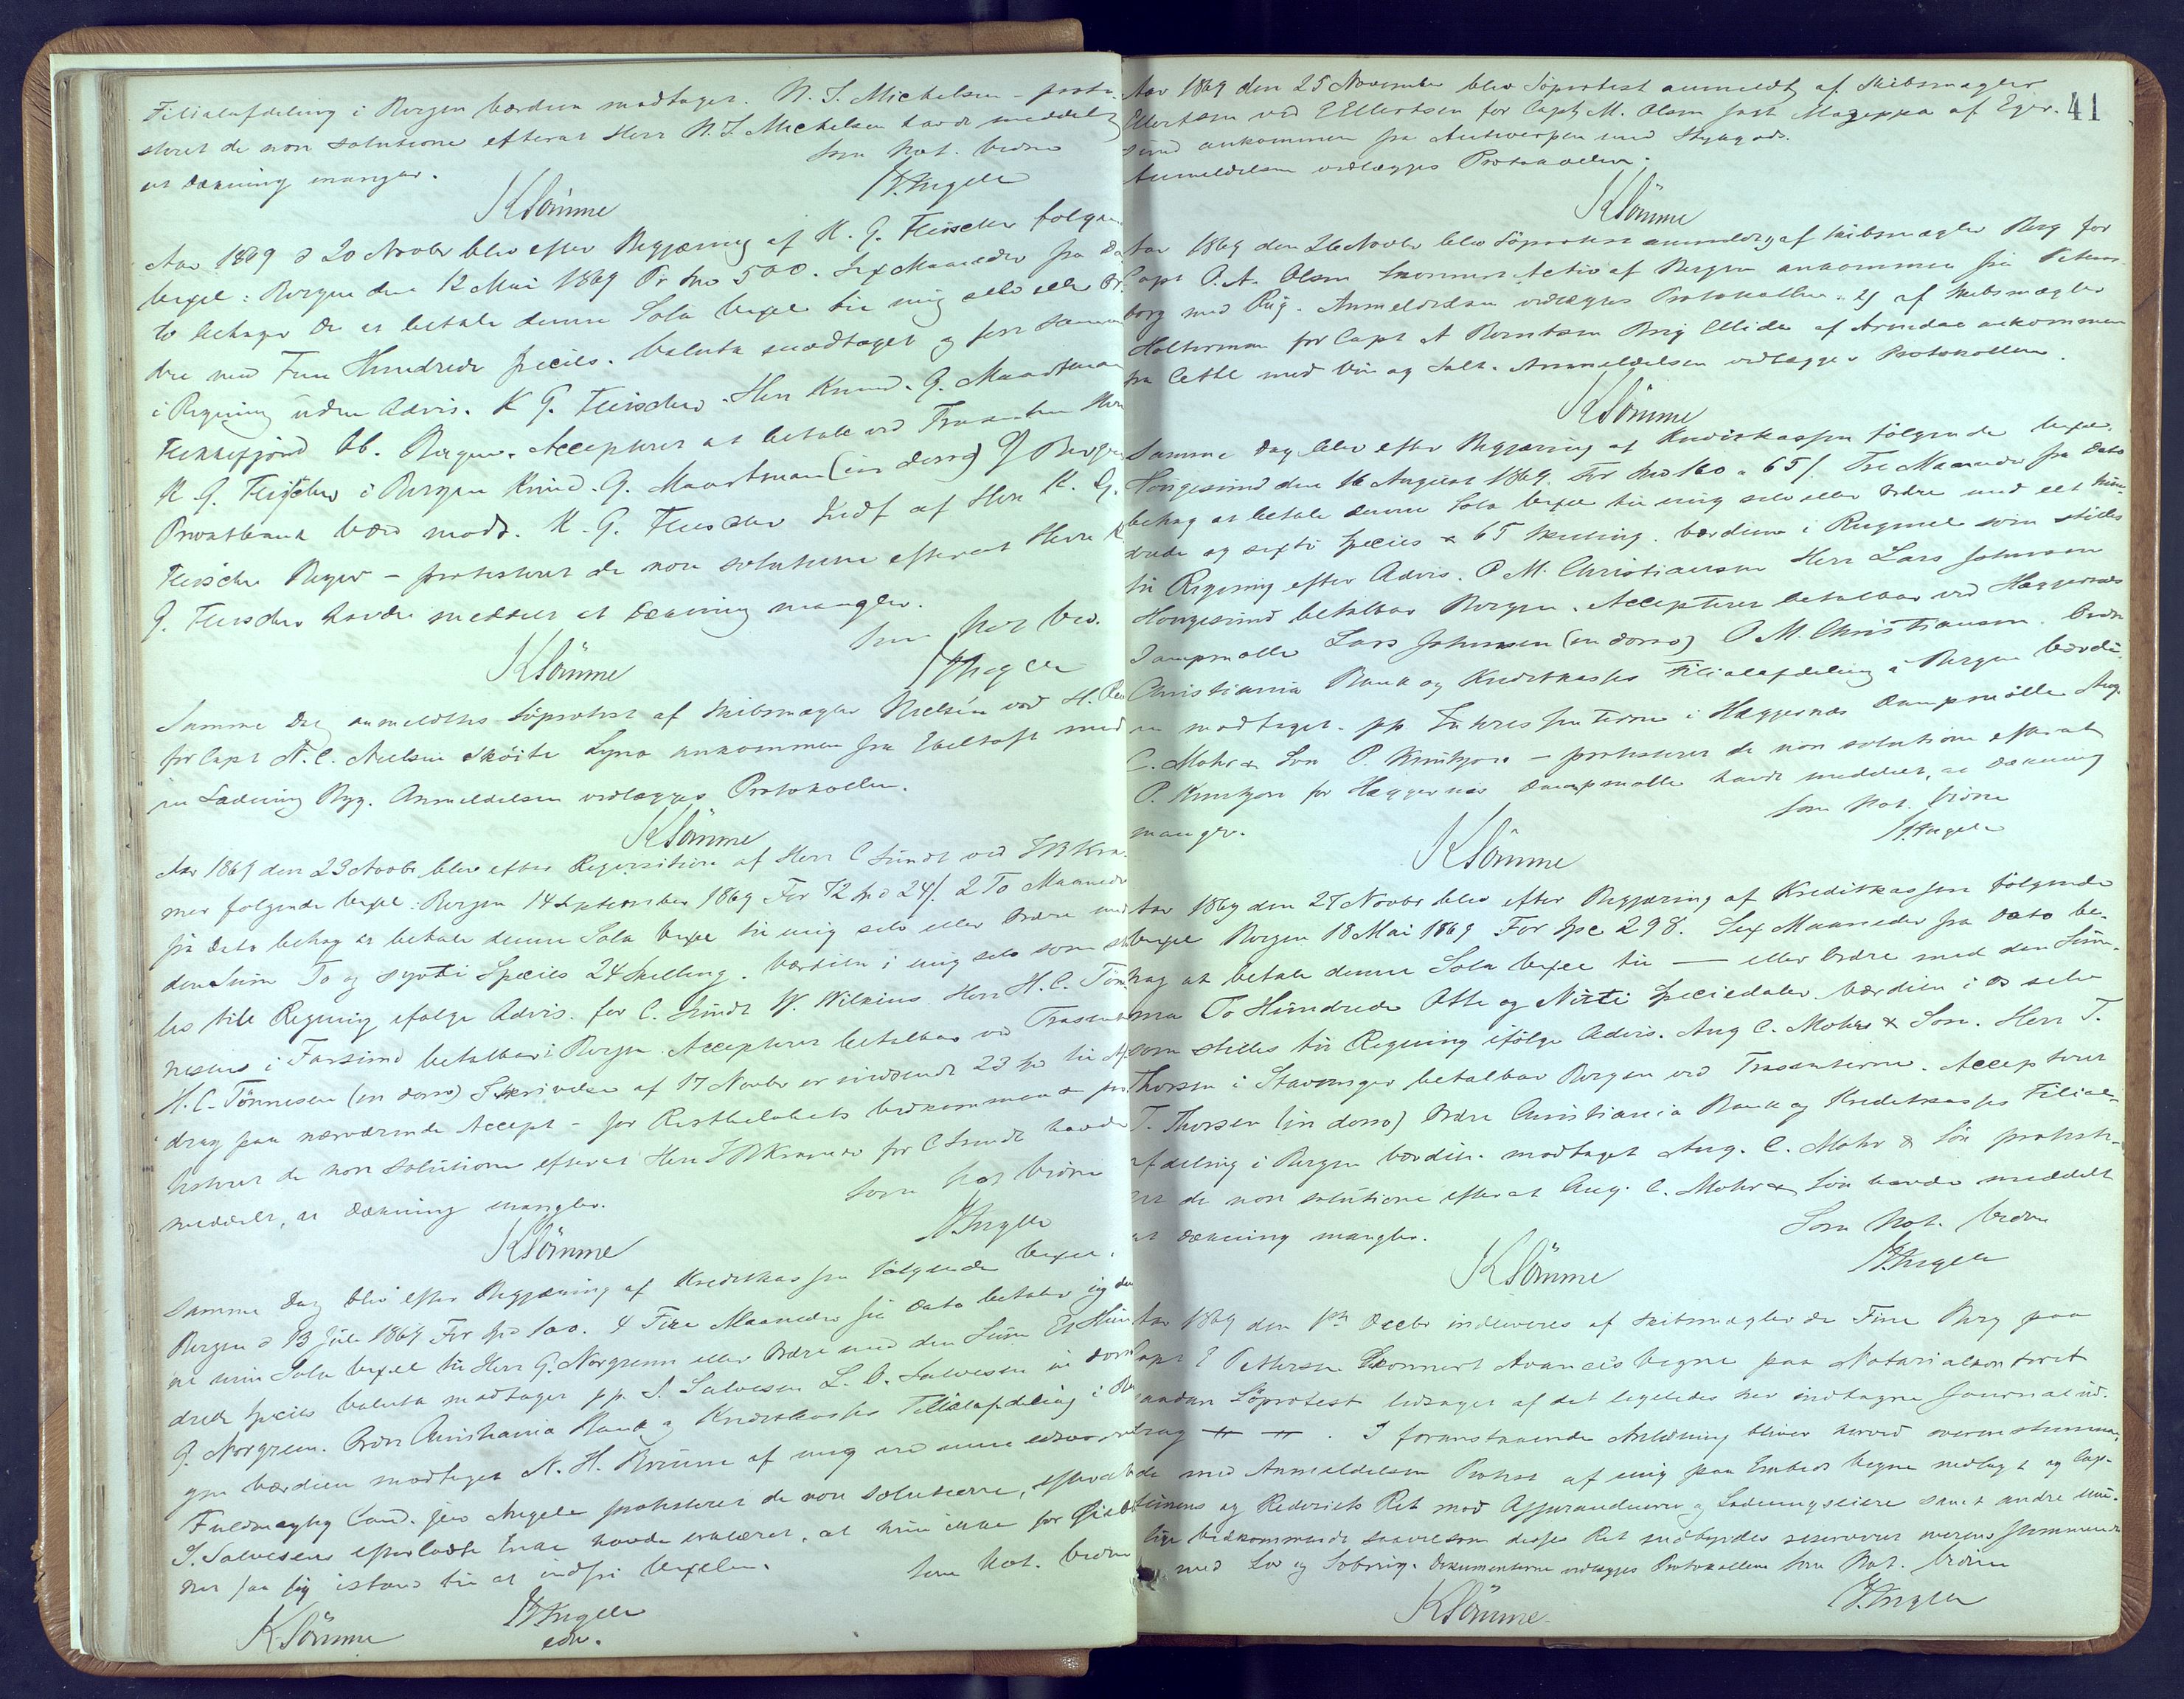 Filialafdeling i Bergen værdien modtaget. N. J. Michelsen - prote-
steret de non solutione efterat Herr N. J. Michelsen havde meddelt
at Dækning mangler.
Som Not. Vidne
KSömme
Aar 1869 d 20 Novbr blev efter Begjæring af K. G. Fleischer følgen
Vexel: Bergen den 12 Mai 1869 Pr Spd 500. Sex Maaneder fra Da
to behager De at betale denne Sola Vexel til mig selv eller Or-
dre med Fem Hundrede Species. Valuta modtaget og
i Regning uden Advis. K G. Fleischer. Herr Knud. G. Maartman
Flekkefjord bb. Bergen. Accepteret at betale ved Trasenten Herr
K. G. Fleischer i Bergen Knud. G. Maartman (in dorso) Bergens
Privatbank Værd modt. K. G. Fleischer Indf af Herr K. G.
Fleischer Berger - protesteret de non solutione efterat Herr K
G. Fleischer havde meddelt at Dækning mangler.
Som Not Vid.
KSömme
Samme Dag anmeldtes Söprotest af Skibsmægler Nielsen ved H.
for Capt N. C. Nielsen Skøite Lyna ankommen fra Ebeltoft med
en Ladning Byg. Anmeldelsen vedlægges Protokollen.
KSömme
Aar 1869 den 23 Novbr blev efter Reqvisition af Herr C Sundt ved Kra-
mer følgende Vexel: Bergen 14 September 1869 For 72 Spd 24/. 2 To Maaneder
fra Dato behag at betale denne Sola Vexel til mig selv eller Ordre med
den Sum To og Syvti Species 24 Skilling. Værdien i mig selv som stil
les till Regning ifølge Advis. for C. Sundt W. Wilkins Herr H. C. Tøn-
nesen i Farsund betalbar i Bergen. Accepteret betalbar ved Trasent
H. C. Tønnesen (in dorso) Skrivelse af 17 Novbr er indsendt 23 Spd til Af-
drag paa nærværende Accept - for Restbeløbets Vedkommende pro-
testeret de non solutione efterat Herr Kramer for C Sundt havde
meddelt, at Dækning mangler.
Som Not Vidne
KSömme
Samme Dag blev efter Begjæring af Kreditkassen følgende Vexel.
Bergen d 13 Juli 1869 For Spd 100. 4 Fire Maaneder fra Dato betaler jeg den
ne min Sola Vexel til Herr G. Norgreen eller Ordre med den Sum Et Hun
drede Species Valuta modtaget pp. S. Salvesen L. O. Salvesen in dorso
G. Norgreen. Ordre Christiania Bank og Kreditkasses Filialafdeling i Ber
gen Værdien modtaget N. H. Bruun af mig ved min edsvorne
Fuldmægtig Cand. jur. Angell protesteret de non solutione, efterat
S. Salvesens efterladte Enke havde erklæret, at hun ikke for Øieblik-
ket saa sig istand til at indfri Vexelen.
Som Not. Vidne
KSömme
edsv.
41
Aar 1869 den 25 November blev Söprotest anmeldt af Skibsmægler
Ellertsen ved E Ellertsen for Capt M. Olsen Jagt Mazeppa af Eger-
sund ankommen fra Antwerpen med Stykgods.
Anmeldelsen vedlægges Protokollen.
KSömme
Aar 1869 den 26 Novbr blev Söprotest anmeldt af Skibsmægler Berg for
Capt O. A. Olsen Skonnert Activ af Bergen ankommen fra Peters-
borg med Rug. Anmeldelsen vedlægges Protokollen. 2/ af Skibsmægler
Holterman for Capt A Berntsen Brig Ellida af Arendal ankommen
fra Cette med Vin og Salt. Anmeldelsen vedlægges Protokollen.
KSömme
Samme Dag blev efter Begjæring af Kreditkassen følgende Vexel
Hougesund den 16 August 1869. For Spd 160 " 65/. Tre Maaneder fra Dato
behag at betale denne Sola Vexel til mig selv eller Ordre med et Hun-
drede og sexti Species & 65 Skilling. Værdien i Rugmel som stilles
til Regning efter Advis. P M. Christiansen Herr Lars Johnsen
Hougesund betalbar Bergen. Accepteret betalbar ved Hæggernæs
Dampmølle Lars Johnsen (in dorso) P M. Christiansen. Ordre
Christiania Bank og Kreditkasses Filialafdeling i Bergen Værdi-
en modtaget. pp Interessenterne i Hæggernæs Dampmølle Aug.
C. Mohr & Søn P. - protesteret de non solutione efterat
P. for Hæggernæs Dampmølle havde meddelt, at Dækning
mangler.
Som Not. Vidne
KSömme
Aar 1869 den 27 Novbr blev efter Begjæring af Kreditkassen følgende
Vexel Bergen 18 Mai 1869 For Spe 298. Sex Maaneder fra Dato be-
hag at betale denne Sola Vexel til — eller Ordre med den Sum-
ma To Hundrede Otte og Nitti Speciedaler Værdien i os selv
som stilles til Regning ifølge Advis. Aug C. Mohr & Søn. Herr T.
Thorsen i Stavanger betalbar Bergen ved Trasenterne. Accepteret
T. Thorsen (in dorso) Ordre Christiania Bank og Kreditkasses Filial-
afdeling i Bergen Værdien modtaget Aug. C. Mohr & Søn protest-
eret de non solutione efterat Aug. C. Mohr & Søn havde meddelt
at Dækning mangler.
Som Not. Vidne
KSömme
Aar 1869 den 1ste Decbr indleveres af Skibsmægler de Fine Berg paa
Capt E Pettersen Skonnert Avances Vegne paa Notarialkontoret
saadan Söprotest ledsaget af det ligeledes her indtagne Journalud-
drag — " — " . I foranstaaende Anledning bliver herved overensstemmen-
de med Anmeldelsen Protest af mig paa Embeds Vegne nedlagt og Cap-
teinens og Rederiets Ret mod Assurandeurer og Ladningseiere samt andre mu-
lige Vedkommende saavelsom disses Ret indbyrdes reserveret overensstemmende
med Lov og Sobrug. Dokumenterne vedlægges Protokollen Som Not. Vidne
KSömme